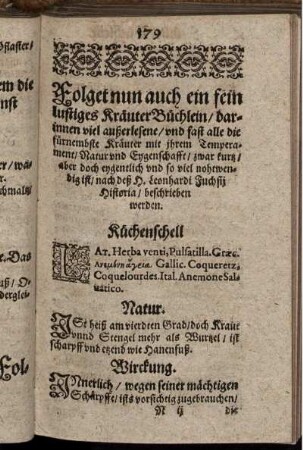 179
Folget nun auch ein fein
lustiges Kräuter Büchlein / dar-
innen viel außerlesene / vnd fast alle die
fürnembste Kräuter mit jhrem Tempera-
ment / Natur vnd Eygenschafft / zwar kurtz /
aber doch eygentlich vnd so viel nohtwen-
dig ist / nach deß H. Leonhardi Fuchsij
Historia / beschrieben
werden.
Küchenschell
LAT. Herba venti, Pulsatilla. Græc.
Gallic. Coqueretz,
Coquelourdes. Ital. Anemone Sal-
uatico.
Natur.
ISt heiß am vierdten Grad / doch Kraut
vnnd Stengel mehr als Wurtzel / ist
scharpff vnd etzend wie Hanenfuß.
Wirckung.
INnerlich / wegen seiner mächtigen
Schärpffe / ists vorsichtig zugebrauchen /
N ij die